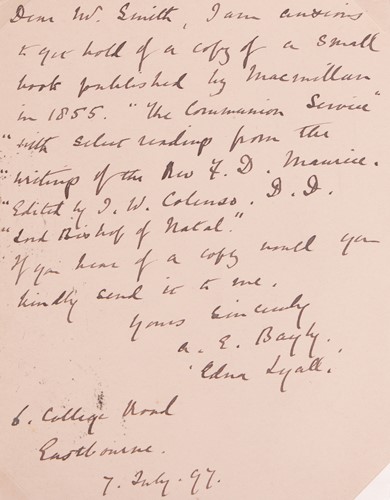 Dear Mr. Smith, I am anxious
to get hold of a copy of a small
book published by Macmillan
in 1855. "The Communion Service"
"with select readings from the
"writings of the Rev F. D. Maurice.
"Edited by J. W. Colenso. D. D.
"Lord Bishop of Natal."
If you hear of a copy would you
kindly send it to me.
Yours sincerely
A. E. Bayly.
'Edna Lyall.'
6. College Road
Eastbourne.
7. July. 97.